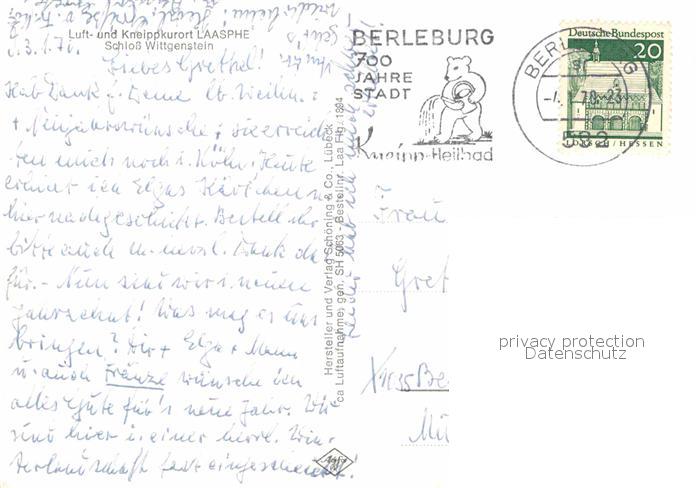 Luft- und Kneippkurort LAASPHE
Schloß Wittgenstein
3.1.70.
Liebes Gretchel!
Hab Dank f. Deine lb. Weihn.-
+ Neujahrswünsche, sie erreich-
ten mich noch i. Köln. Heute
erhielt ich Elgas Kärtchen
hier nachgeschickt. Bestell ihr
bitte auch m. herzl. Dank da-
für. – Nun sind wir i. neuen
Jahrzehnt! Was mag es uns
bringen? Dir + Elga + Mann
u. auch Fränze wünsche ich
alles Gute für's neue Jahr. Wir
sind hier in einer herrl. Win-
terlandschaft fast eingeschneit!
Hersteller und Verlag Schöning & Co., Lübeck
ca Luftaufnahme, gen. SH 5063 - Bestellnr. Laa Fig. 1694
BERLEBURG
700
JAHRE
STADT
Kneipp-Heilbad
Deutsche Bundespost
20
LORSCH / HESSEN
BERLEBURG
592
Frau
Gret
X1135 Be
privacy protection
Datenschutz